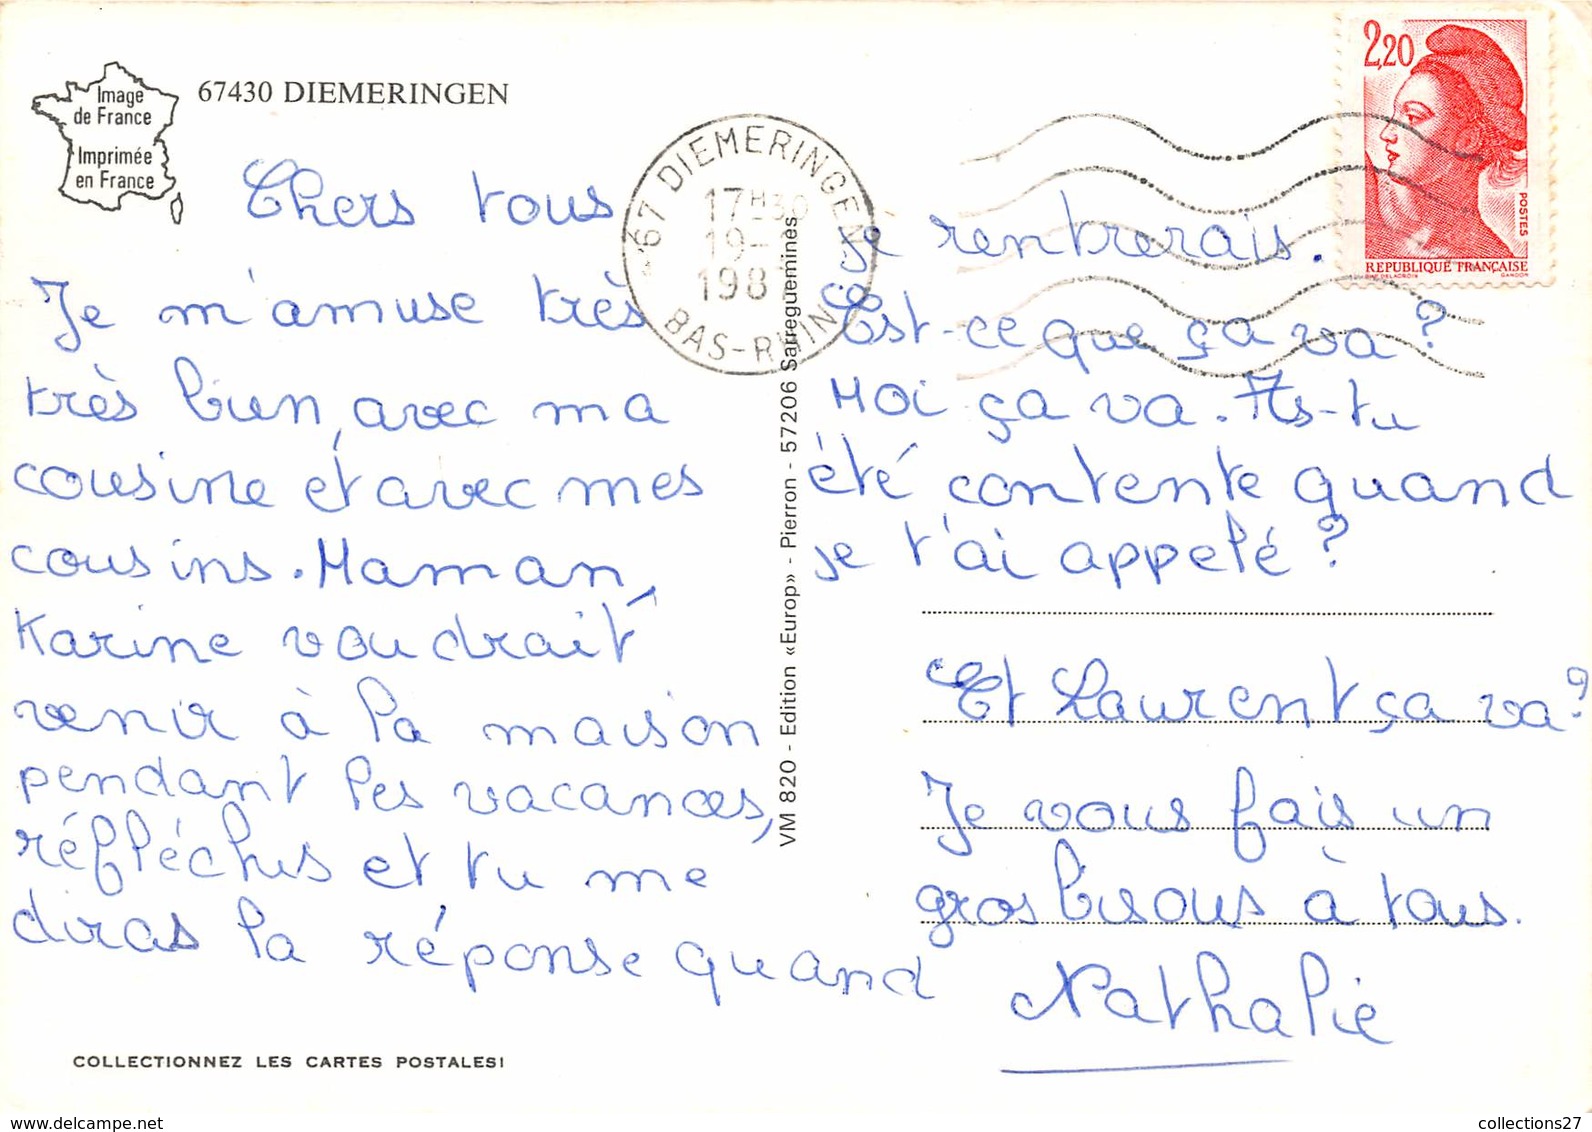 Image
de France
Imprimée
en France
67430 DIEMERINGEN
67 DIEMERINGEN
17H30
19-
198
BAS-RHIN
2,20
POSTES
REPUBLIQUE FRANÇAISE
Chers tous
Je m'amuse très
très bien, avec ma
cousine et avec mes
cousins. Maman,
Karine voudrait
venir à la maison
pendant les vacances,
réfléchis et tu me
diras la réponse quand
je rentrerais.
Est-ce que ça va?
Moi ça va. As-tu
été contente quand
je t'ai appelé?
Et Laurent ça va?
Je vous fais un
gros bisous à tous.
Nathalie
VM 820 - Edition «Europ» - Pierron - 57206 Sarreguemines
COLLECTIONNEZ LES CARTES POSTALES!
www.delcampe.net
collections27